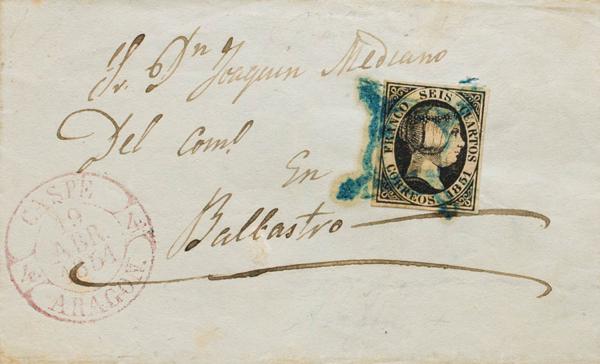 Sr. Dn Joaquin Medrano
Del coml.
En
Balbastro
FRANCO SEIS CUARTOS
CORREOS 1851
CASPE
19
ABR.
1851
ARAGON.